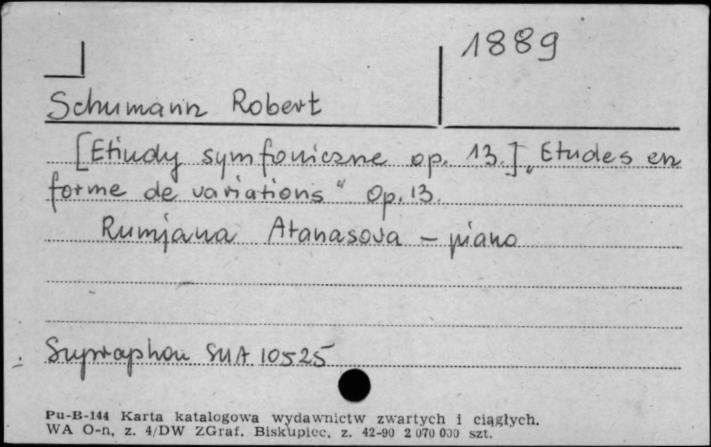 1889
Schumann Robert
[Etiudy symfoniczne op. 13.] „Etudes en
forme de variations" Op. 13.
Rumjana Atanasova - piano
Supraphon SUA 10525
Pu-B-144 Karta katalogowa wydawnictw zwartych i ciągłych.
WA O-n, z. 4/DW ZGraf. Biskupiec, z. 42-90 2 070 000 szt.